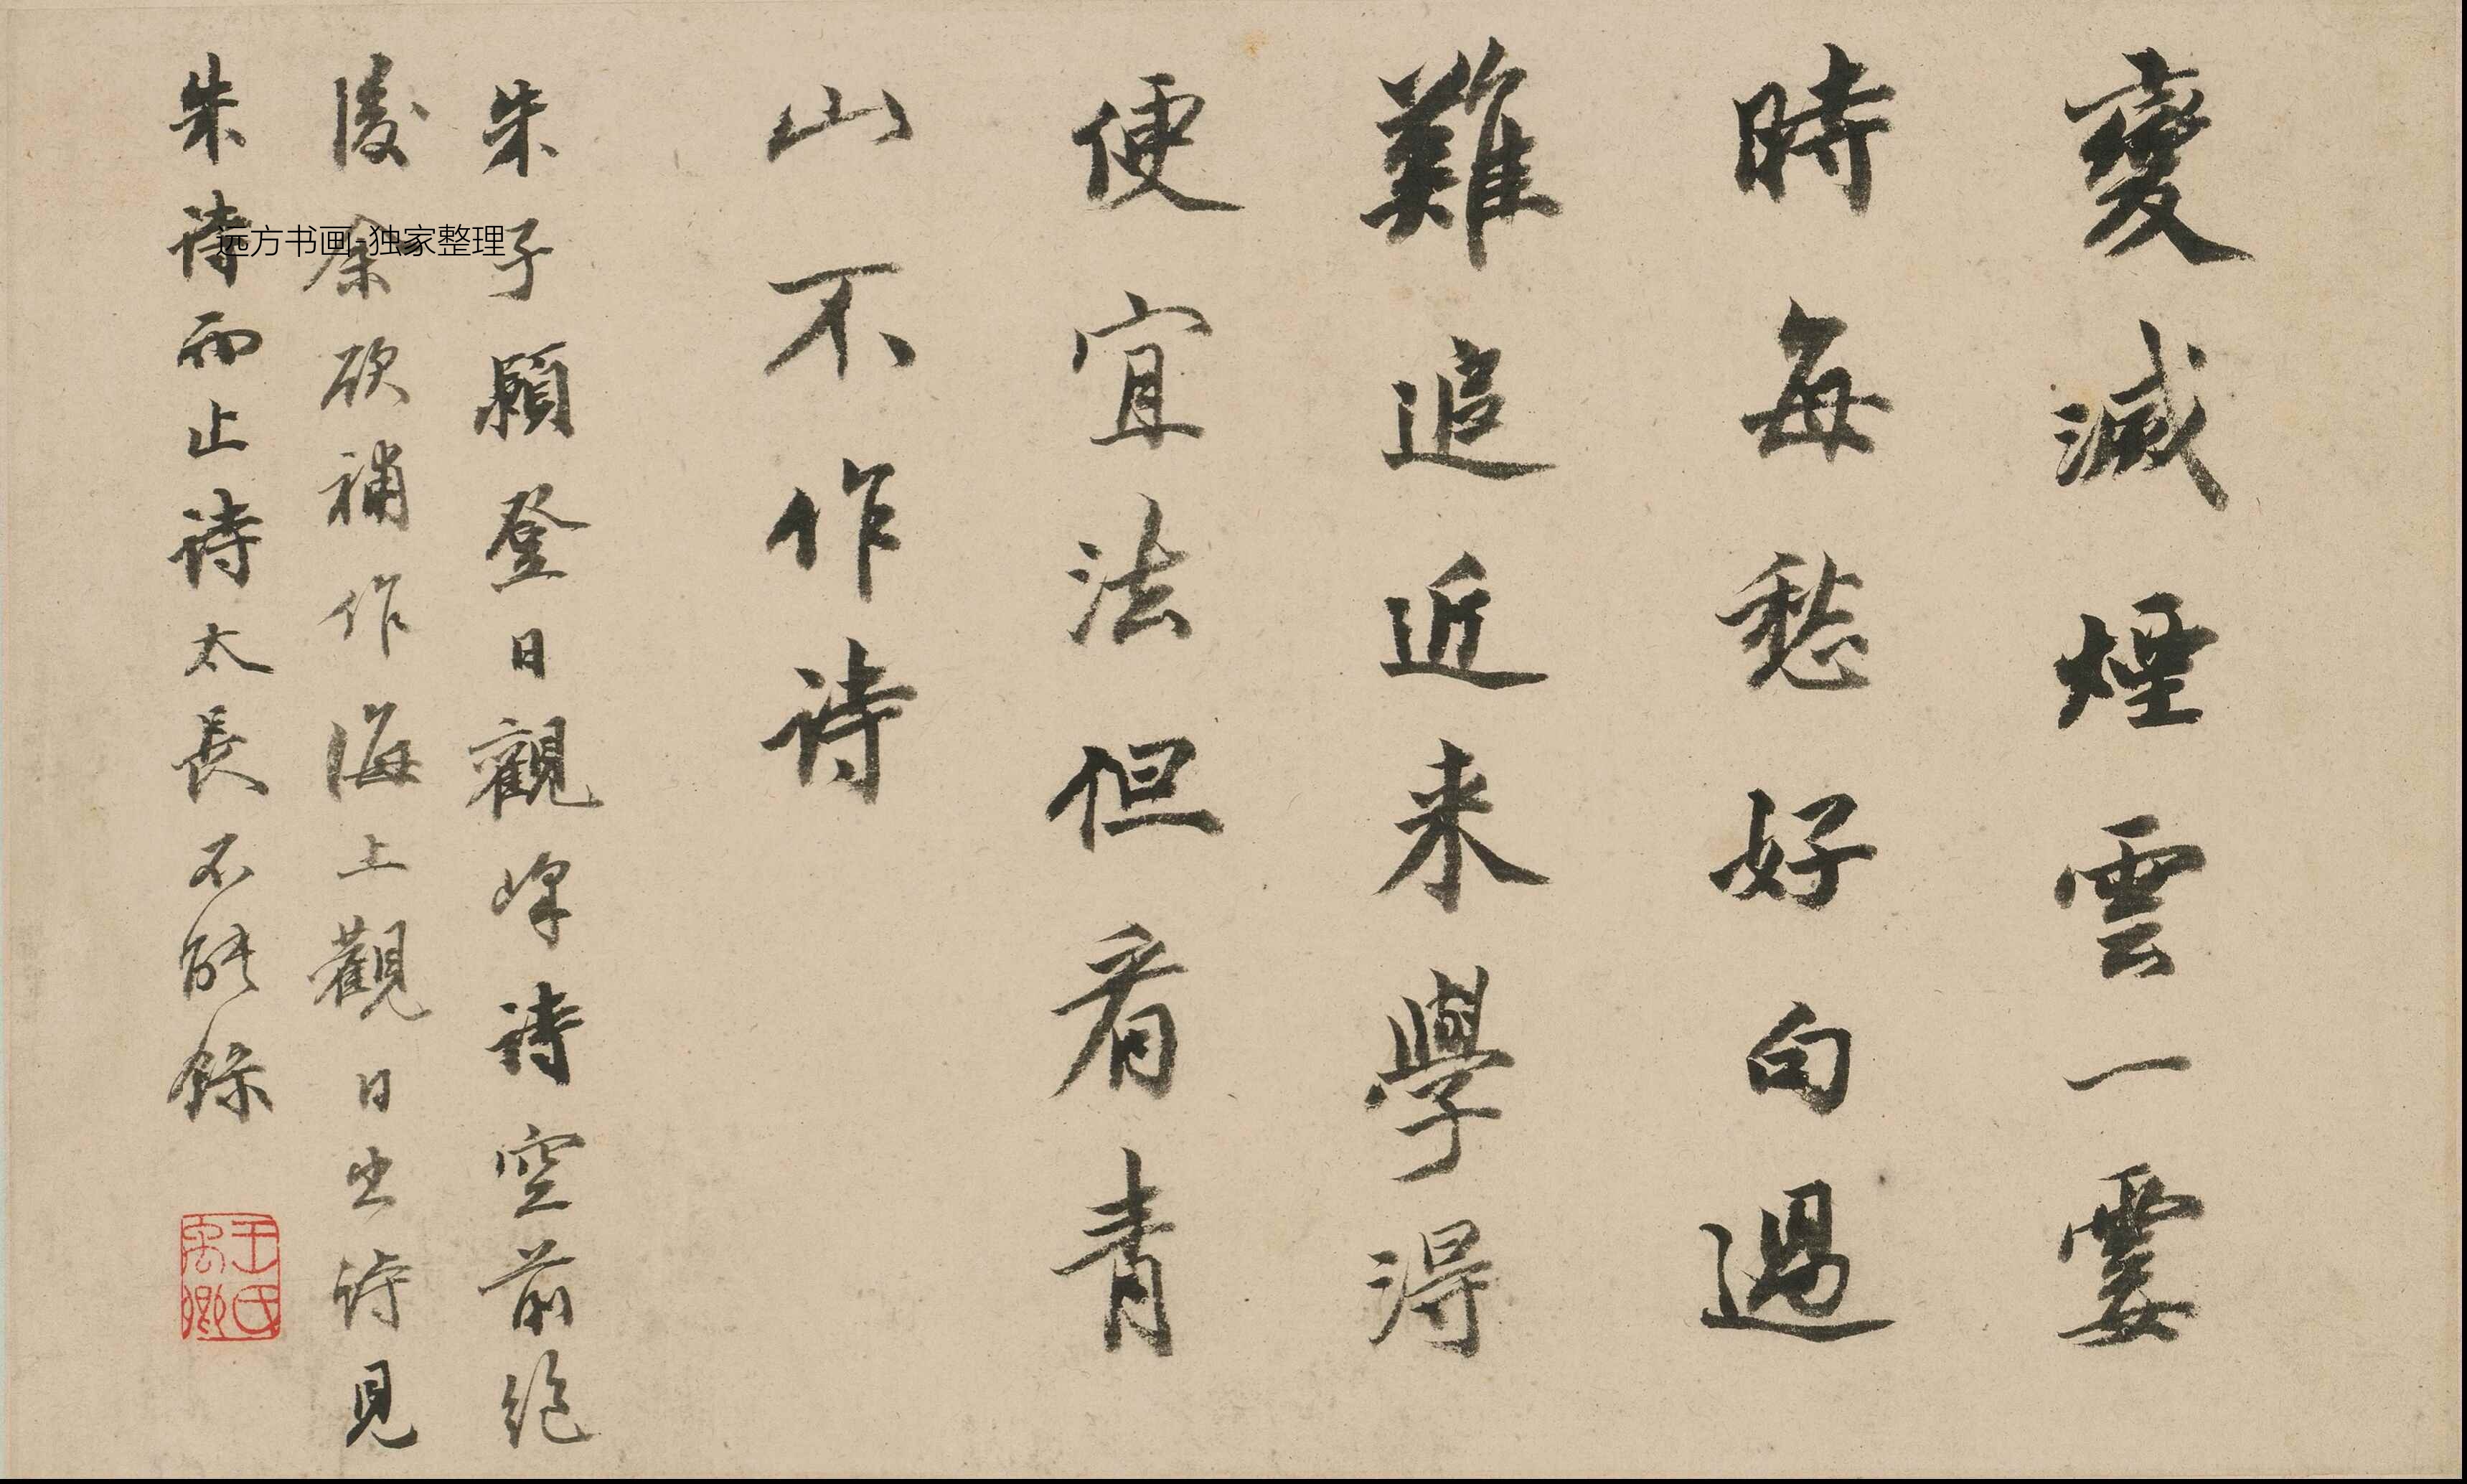 變滅煙雲一霎
時每愁好句過
難追近来學得
便宜法但看青
山不作詩
朱子願登日觀峰詩空前絕
後余欲補作海上觀日出詩見
朱詩而止詩太長不能錄
王氏禹卿
远方书画-独家整理